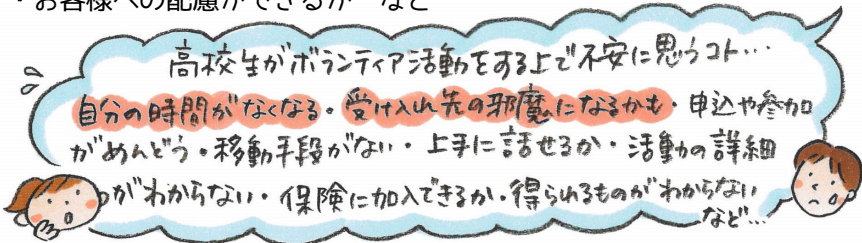 ・お客様への配慮ができるか　など
高校生がボランティア活動をする上で不安に思うコト…
自分の時間がなくなる・受け入れ先の邪魔になるかも・申込や参加
がめんどう・移動手段がない・上手に話せるか・活動の詳細
がわからない・保険に加入できるか・得られるものがわからない
など…